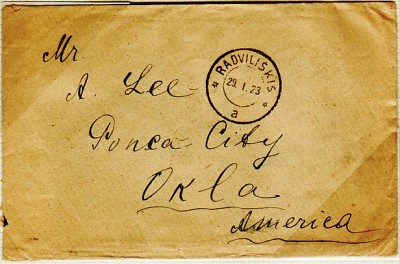 Mr.
A. Lee
RADVILIŠKIS
29. I. 23
a
Ponca City
Okla
America